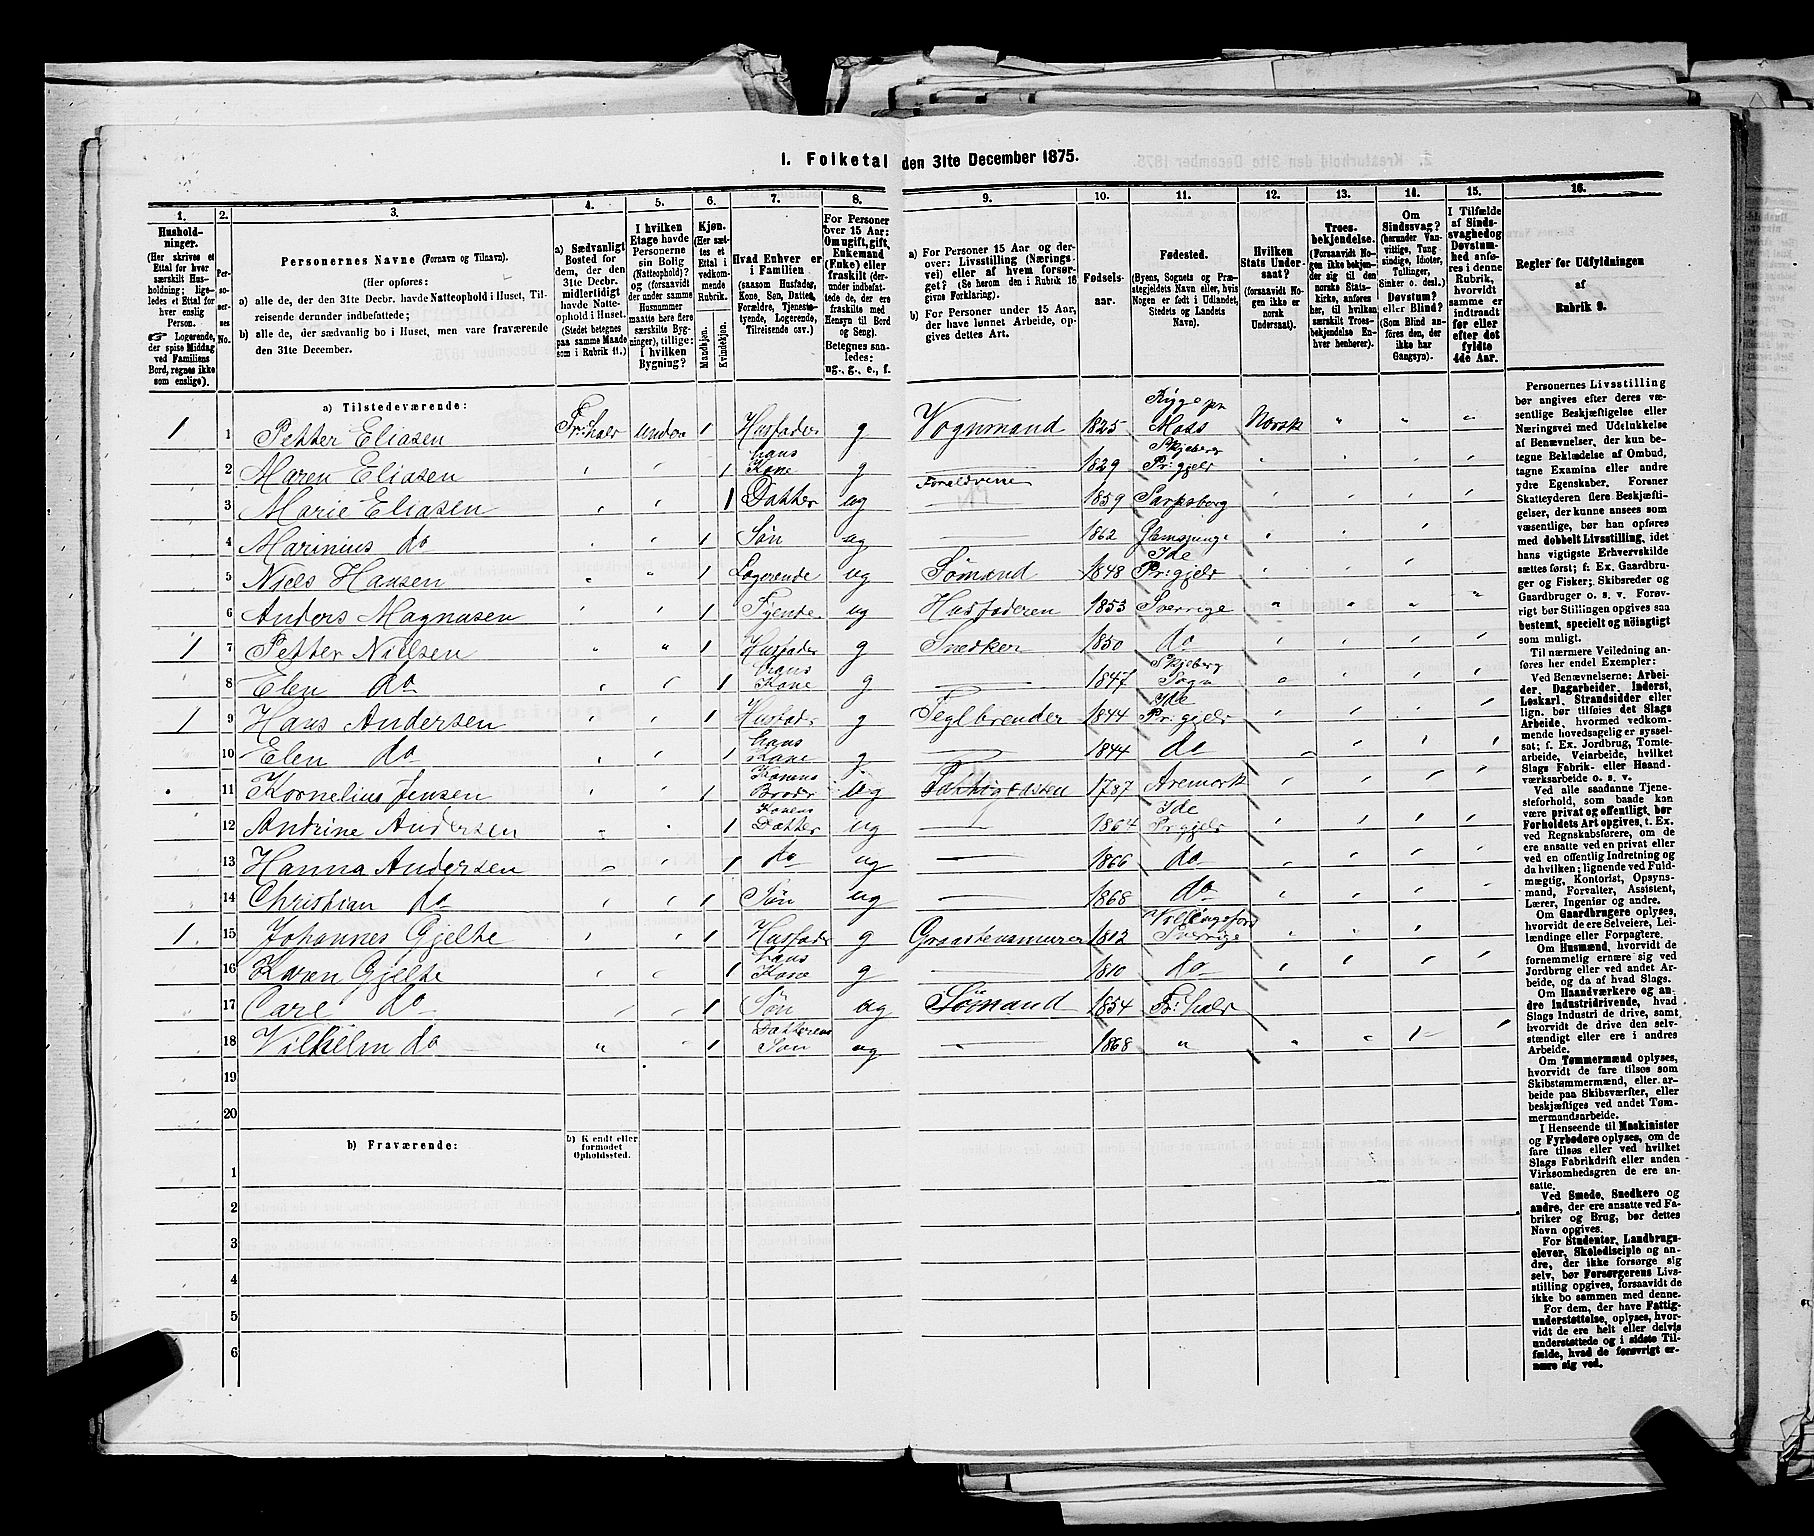 1. Folketal den 31te December 1875.
1. 2. 3. 4. 5. 6. 7. 8. 9. 10. 11. 12. 13. 14. 15. 16.
Hushold-
ninger.
(Her skrives et
Ettal for hver
særskilt Hus-
holdning; lige-
ledes et Ettal for
hver enslig
Person.
☞ Logerende,
der spise Middag
ved Familiens
Bord, regnes ikke
som enslige).
Per-
so-
ner-
nes
No.
Personernes Navne (Fornavn og Tilnavn).
(Her opføres:
a) alle de, der den 31te Decbr. havde Natteophold i Huset, Til-
reisende derunder indbefattede;
b) alle de, der sædvanlig bo i Huset, men vare fraværende
den 31te December.
a) Sædvanligt
Bosted for
dem, der den
31te Decbr.
midlertidigt
havde Natte-
ophold i Huset.
(Stedet betegnes
paa samme Maade
som i Rubrik 11.)
I hvilken
Etage havde
Personerne
sin Bolig
(Natteophold)?
(og forsaavidt
der under samme
Husnummer
maatte høre flere
særskilte Byg-
ninger), tillige:
i hvilken
Bygning?
Kjøn.
(Her sæt-
tes et
Ettal i
vedkom-
mende
Rubrik.
Mandkjøn.
Kvindekjøn.
Hvad Enhver er
i Familien
(saasom Husfader,
Kone, Søn, Datter,
Forældre, Tjeneste-
tyende, Logerende,
Tilreisende osv.)
For Personer
over 15 Aar:
Om ugift, gift,
Enkemand
(Enke) eller
fraskilt (der-
indbefatte-
de, der ere
fraskilte med
Hensyn til Bord
og Seng).
Betegnes saa-
ledes:
ug., g., e., f.
a) For Personer 15 Aar og der-
over: Livsstilling (Nærings-
vei) eller af hvem forsør-
get? (Se herom den i Rubrik 16
givne Forklaring).
b) For Personer under 15 Aar,
der have lønnet Arbeide, op-
gives dettes Art.
Fødsels-
aar.
Fødested.
(Byens, Sognets og Præ-
stegjeldets Navn eller, hvis
Nogen er født i Udlandet,
Stedets og Landets
Navn).
Hvilken
Stats Under-
saat?
(forsaavidt No-
gen ikke er
norsk
Undersaat).
Troes-
bekjendelse.
(Forsaavidt No-
gen ikke bekjen-
der sig til den
norske Stats-
kirke, anføres
her, til hvilken
særskilt Troes-
bekjendelse En-
hver henhører).
Om
Sindssvag?
(herunder Van-
vittige, Tung-
sindige, Idioter,
Tullinger,
Sinker o. desl.)
Døvstum?
eller Blind?
(Som Blind an-
føres den, der
ikke har
Gangsyn).
I Tilfælde
af Sinds-
svaghed og
Døvstum-
hed anføres
i denne
Rubrik,
hvorvidt
samme er
indtraadt
før eller
efter det
fyldte
4de Aar.
Regler for Udfyldningen
af
Rubrik 9.
a) Tilstedeværende:
1 1 Petter Eliasen Fr: hald 1 Husfader g Vognmand 1825 Rygge pr Moss Norsk
2 Maren Eliasen 1 hans Kone g 1829 Skjeberg Pr: gjeld
3 Marie Eliasen 1 Datter ug Foreldrene 1859 Sarpsborg
4 Marinius do 1 Søn ug 1862
5 Niels Hansen 1 Logerende ug Sømand 1848 Ide Pr: gjeld
6 Anders Magnusen 1 Tyende ug Husfaderen 1853 Sverrige
1 7 Petter Nielsen 1 Husfader g Snedker 1850 do
8 Elen do 1 hans Kone g 1847 Skjeberg Sogn
1 9 Hans Andersen 1 Husfader g Teglbrender 1844 Ide Pr: gjeld
10 Elen do 1 hans Kone g 1844 do
11 Kornelius Jensen 1 Konens Broder ug 1787 Aremork
12 Andrine Andersen 1 Konens Datter ug 1864 Ide Pr: gjeld
13 Hanna Andersen 1 do ug 1866 do
14 Christian do 1 Søn ug 1868 do
1 15 Johannes Gjelte 1 Husfader g Graastensmurer 1812 Sverrige
16 Karen Gjelte 1 hans Kone g 1810 do
17 Carl do 1 Søn ug Sømand 1854 Fr: hald
18 Vilhelm do 1 Datterens Søn ug 1868 "
19
20
b) Fraværende:
b) Kjendt eller
formodet
Opholdssted.
1
2
3
4
5
6
Personernes Livsstilling
bør angives efter deres væ-
sentlige Beskjæftigelse eller
Næringsvei med Udelukkelse
af Benævnelser, der kun be-
tegne Beklædelse af Ombud,
tagne Examina eller andre
ydre Egenskaber. Forener
Skatteyderen flere Beskjæfti-
gelser, der kunne ansees som
væsentlige, bør han opføres
med dobbelt Livsstilling, idet
hans vigtigste Erhvervskilde
sættes først; f. Ex. Gaardbru-
ger og Fisker; Skibsreder og
Gaardbruger o. s. v. Forøv-
rigt bør Stillingen opgives saa
bestemt, specielt og nøiagtigt
som muligt.
Til nærmere Veiledning an-
føres her endel Exempler:
Ved Benævnelserne: Arbei-
der, Dagarbeider, Inderst,
Løskarl, Strandsidder eller
lign. bør tilføies det Slags
Arbeide, hvormed vedkom-
mende hovedsagelig er syssel-
sat; f. Ex. Jordbrug, Tomte-
arbeide, Veiarbeide, hvilket
Slags Fabrik- eller Haand-
værksarbeide o. s. v.
Ved alle saadanne Tjene-
steforhold, som baade kan
være privat og offentligt, bør
Forholdets Art opgives, t. Ex.
ved Regnskabsførere, om de
ere ansatte ved en privat eller
ved en offentlig Indretning og
da hvilken; lignende ved Fuld-
mægtig, Kontorist, Opsyns-
mand, Forvalter, Assistent,
Lærer, Ingeniør og andre.
Om Gaardbrugere oplyses,
hvorvidt de ere Selveiere, Lei-
lændinge eller Forpagtere.
Om Husmænd, hvorvidt de
fornemmelig ernære sig ved
Jordbrug eller ved andet Ar-
beide, og da af hvad Slags.
Om Haandværkere og an-
dre Industridrivende, hvad
Slags Industri de drive, samt
hvorvidt de drive den selv-
stændigt eller ere i andres
Arbeide.
Om Tømmermænd oplyses,
hvorvidt de fare tilsøs som
Skibstømmermænd, eller ar-
beide paa Skibsværfter, eller
beskjæftiges ved andet Tøm-
mermandsarbeide.
I Henseende til Maskinister
og Fyrbødere oplyses, om de
fare tilsøs eller ved hvilket
Slags Fabrikdrift eller anden
Virksomhedsgren de ere an-
satte.
Ved Smede, Snedkere og
andre, der ere ansatte ved Fa-
briker og Brug, bør dettes
Navn opgives.
For Studenter, Landbrugs-
elever, Skoledisciple og an-
dre, der ikke forsørge sig
selv, bør Forsørgerens Livs-
stilling opgives, forsaavidt de
ikke bo sammen med denne.
For dem, der have Fattig-
understøttelse, oplyses, hvor-
vidt de ere helt eller delvis
understøttede og i sidste Til-
fælde, hvad de forøvrigt er-
nære sig ved.